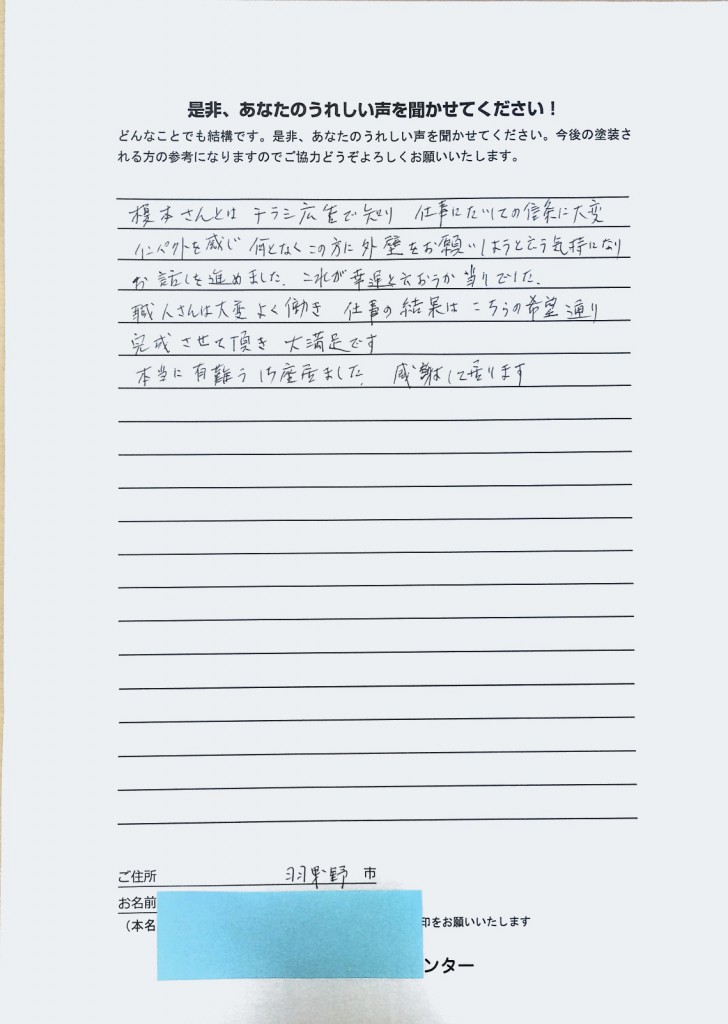 是非、あなたのうれしい声を聞かせてください！
どんなことでも結構です。是非、あなたのうれしい声を聞かせてください。今後の塗装さ
れる方の参考になりますのでご協力どうぞよろしくお願いいたします。
榎本さんとは チラシ広告で知り 仕事にたいしての信条に大変
インペクトを感じ 何となくこの方に外壁をお願いしようと云う気持になり
お話しを進めました。これが幸運と云おうか当りでした。
職人さんは大変よく働き 仕事の結果はこちらの希望通り
完成させて頂き 大満足です
本当に有難う御座居ました。 感謝して居ります
ご住所 羽曳野 市
お名前
（本名
印をお願いいたします
ンター